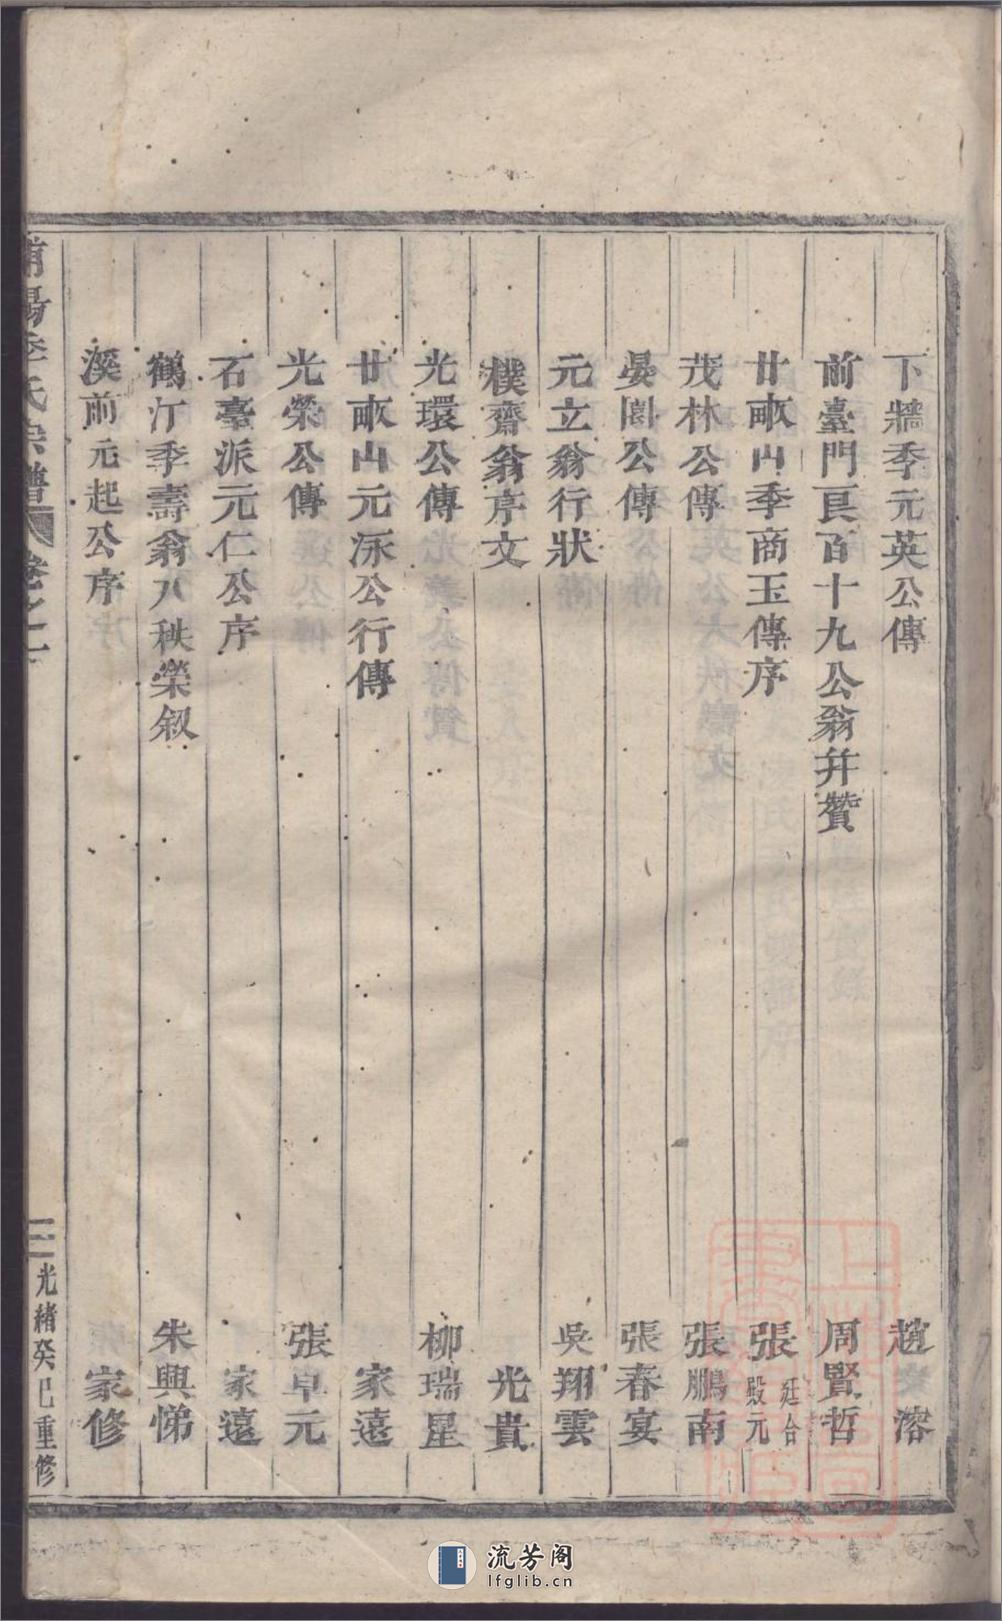 下牆季元英公傳　趙溶
前臺門艮百十九公翁幷贊　周賢哲
廿畝山季商玉傳序　張廷合殿元
茂林公傳　張鵬南
晏園公傳　張春宴
元立翁行狀　吳翔雲
樸齋翁序文　光貴
光環公傳　柳瑞星
廿畝山元泳公行傳　家遠
光榮公傳　張卓元
石臺派元仁公序　家遠
鶴汀季壽翁八秩榮叙　朱興悌
溪前元起公序　家修
陽季氏宗譜　卷之一　二　光緒癸巳重修
流芳阁
lfglib.cn